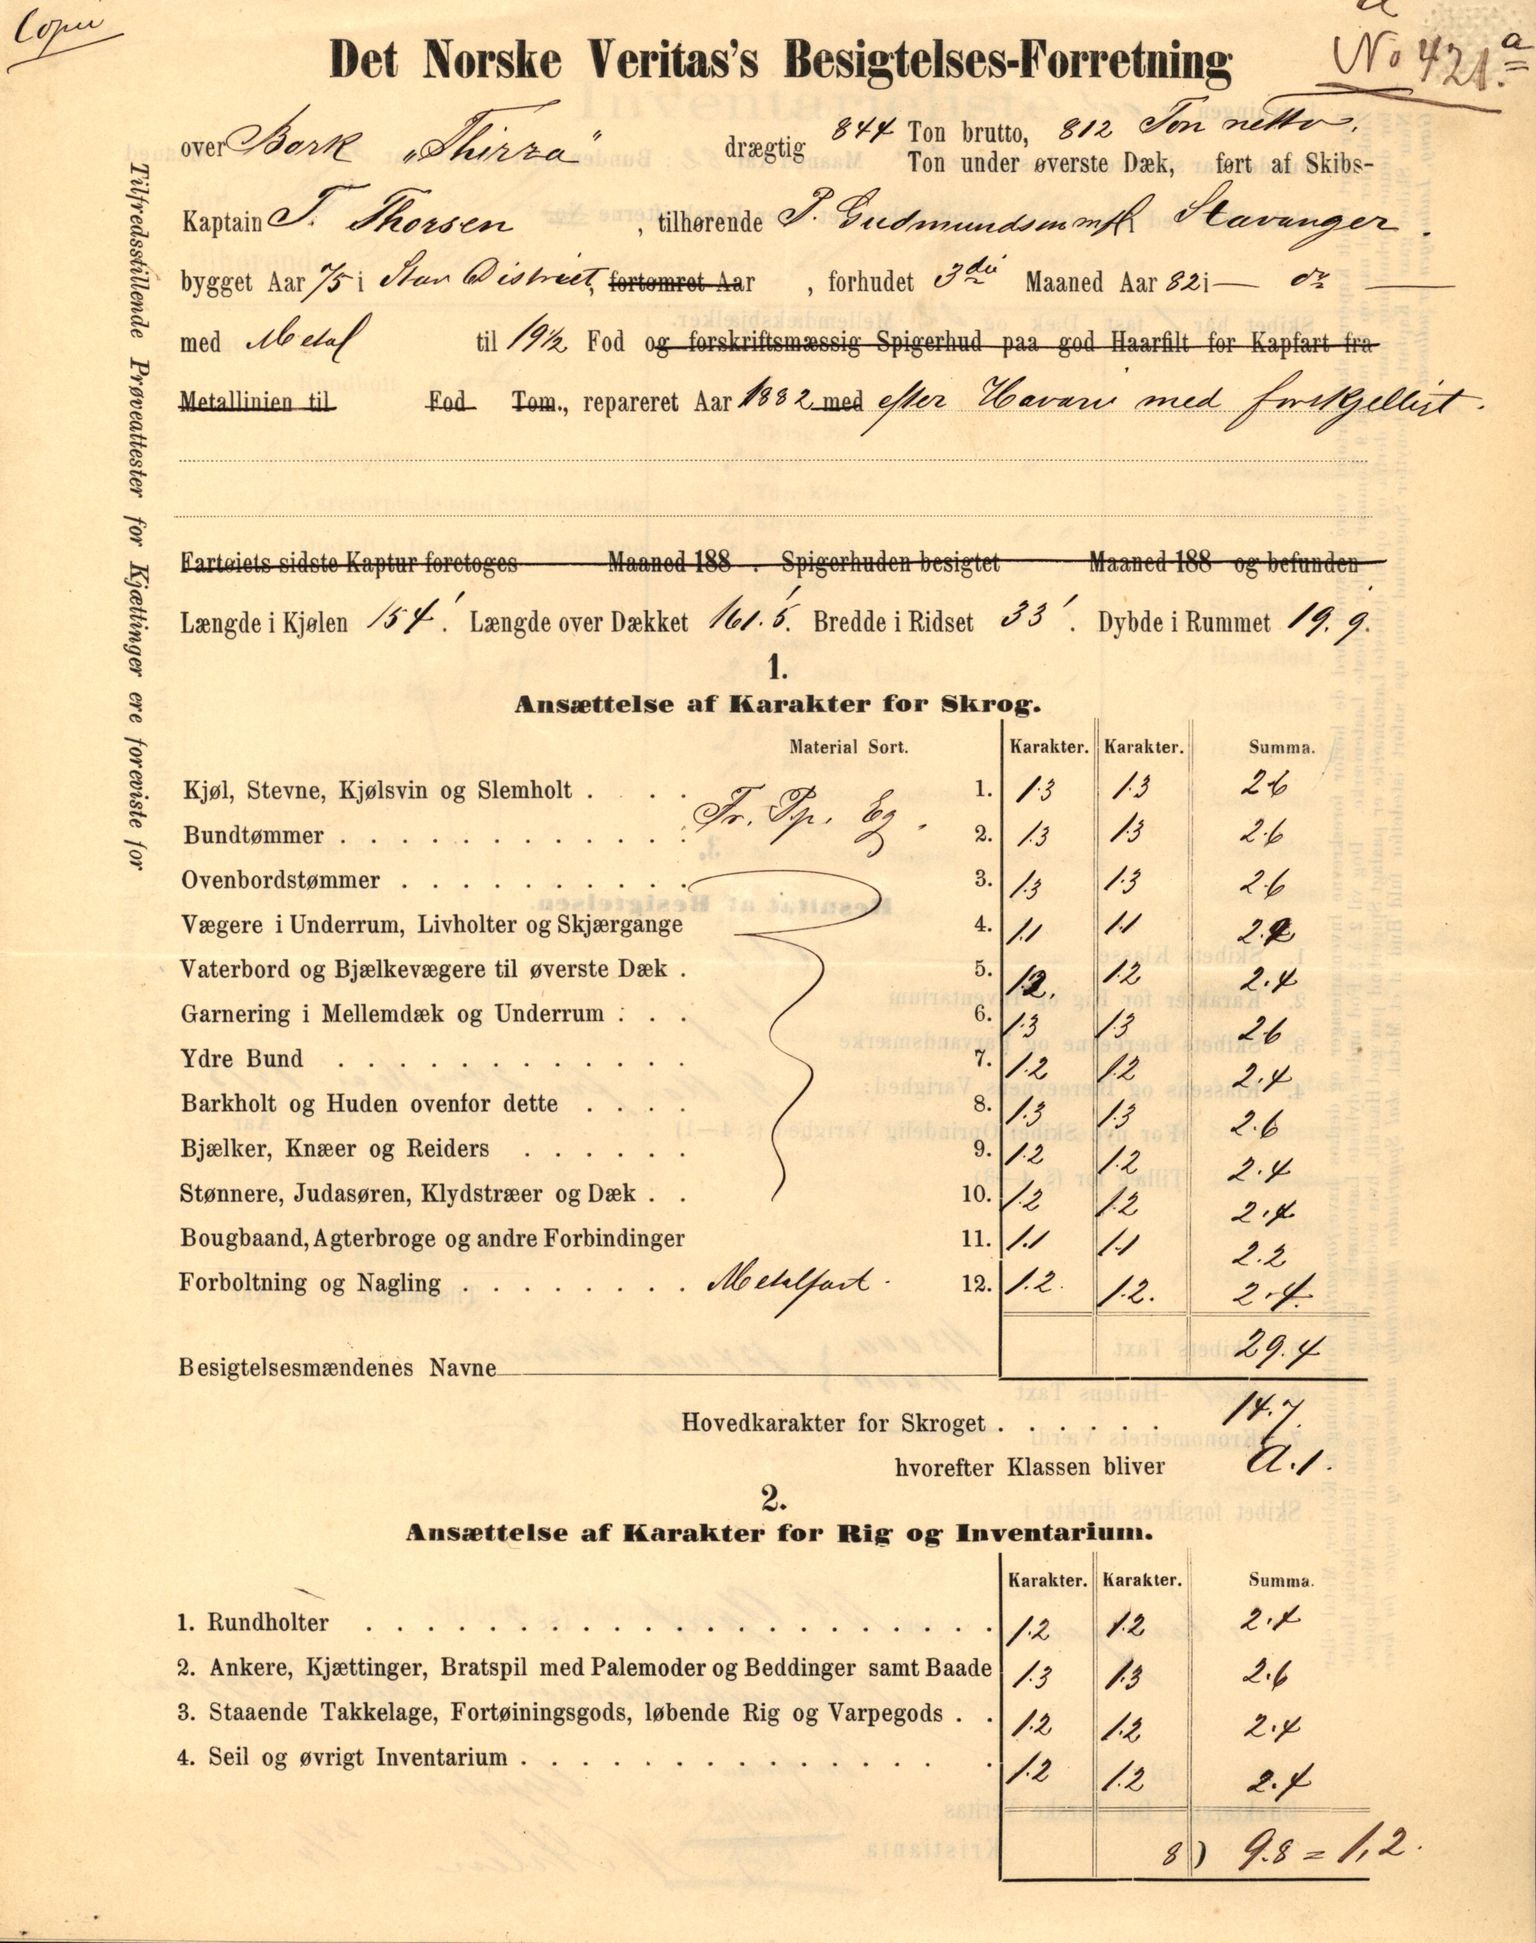 Copie
No 421.a
Det Norske Veritas's Besigtelses-Forretning
over Bark "Thirza" drægtig 844 Ton brutto, 812 Ton netto.
Ton under øverste Dæk, ført af Skibs-
Kaptain T. Thorsen , tilhørende P. Gudmundsen m fl Stavanger.
bygget Aar 75 i Stav District, fortømret Aar , forhudet 3die Maaned Aar 82 i — do —
med Metal til 19 1/2 Fod og forskriftsmæssig Spigerhud paa god Haarfilt for Kapfart fra
Metallinien til Fod Tom., repareret Aar 1882 med efter Havari med forskjelligt.
Fartøiets sidste Kaptur foretoges Maaned 188 . Spigerhuden besigtet Maaned 188 og befunden
Længde i Kjølen 154'. Længde over Dækket 161.5'. Bredde i Ridset 33'. Dybde i Rummet 19.9'.
1.
Ansættelse af Karakter for Skrog.
Material Sort. Karakter. Karakter. Summa.
Kjøl, Stevne, Kjølsvin og Slemholt . . . 1. 1.3 1.3 2.6
Fr. Pp. Eg.
Bundtømmer . . . . . . . . . . . . 2. 1.3 1.3 2.6
Ovenbordstømmer . . . . . . . . . . 3. 1.3 1.3 2.6
Vægere i Underrum, Livholter og Skjærgange 4. 1.1 1.1 2.2
Vaterbord og Bjælkevægere til øverste Dæk . 5. 1.2. 1.2 2.4
Garnering i Mellemdæk og Underrum . . . 6. 1.3 1.3 2.6
Ydre Bund . . . . . . . . . . . . 7. 1.2 1.2 2.4
Barkholt og Huden ovenfor dette . . . . 8. 1.3 1.3 2.6
Bjælker, Knæer og Reiders . . . . . . 9. 1.2 1.2 2.4
Stønnere, Judasøren, Klydstræer og Dæk . . 10. 1.2 1.2 2.4
Bougbaand, Agterbroge og andre Forbindinger 11. 1.1 1.1 2.2
Forboltning og Nagling . . . . . . . . Metalfast. 12. 1.2. 1.2. 2.4.
29.4
Besigtelsesmændenes Navne
Hovedkarakter for Skroget . . . . . . 14.7.
hvorefter Klassen bliver A.1.
2.
Ansættelse af Karakter for Rig og Inventarium.
Karakter. Karakter. Summa.
1. Rundholter . . . . . . . . . . . . . . . . . . . . 1.2 1.2 2.4
2. Ankere, Kjættinger, Bratspil med Palemoder og Beddinger samt Baade 1.3 1.3 2.6
3. Staaende Takkelage, Fortøiningsgods, løbende Rig og Varpegods . . 1.2 1.2 2.4
4. Seil og øvrigt Inventarium . . . . . . . . . . . . . . . 1.2 1.2 2.4
8) 9.8 = 1,2.
Tilfredsstillende Prøveattester for Kjættinger ere foreviste for